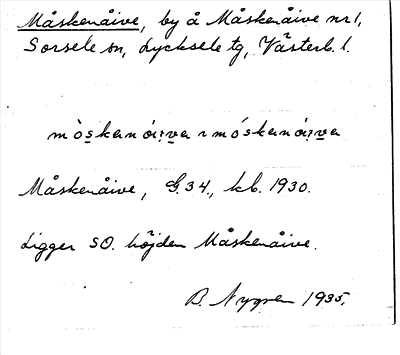 Måskenåive, by å Måskenåive nr 1,
Sorsele sn, Lycksele tg, Västerb. l.
mòskenáiva ~ móskenáiva
Måskenåive, G.34., kb. 1930.
Ligger SO. höjden Måskenåive.
B. Nygren 1935.